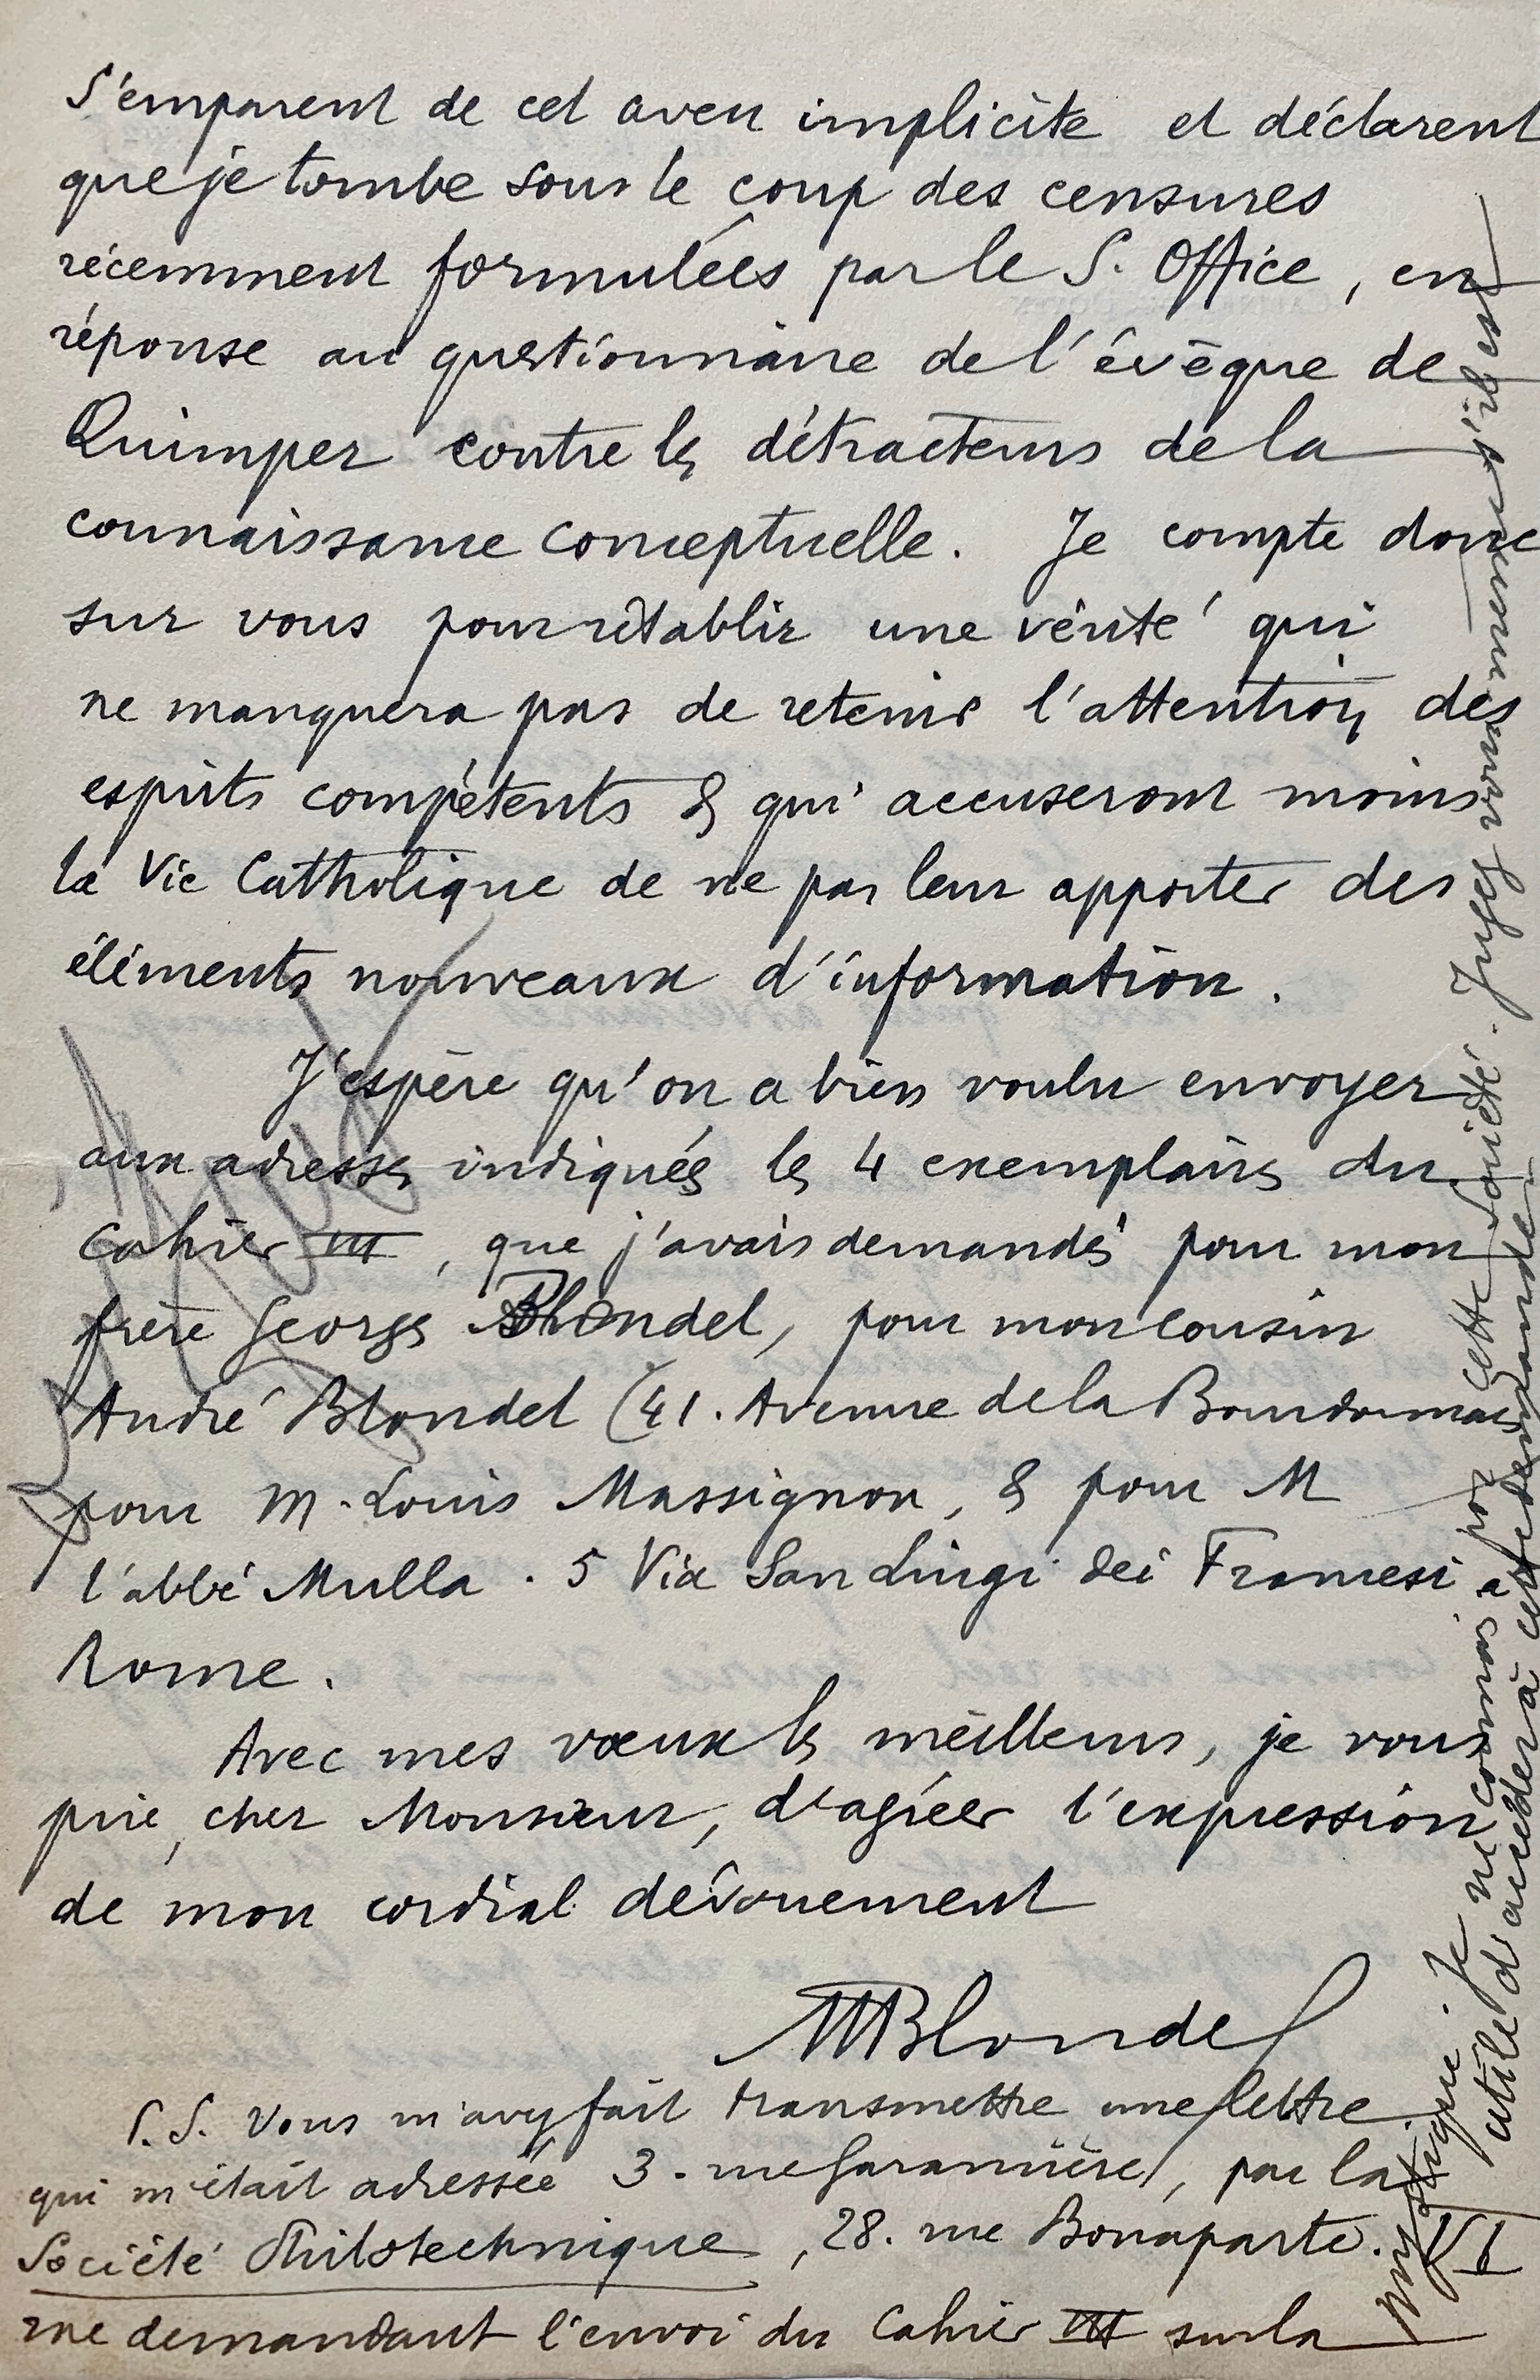 s'emparent de cet aveu implicite et déclarent
que je tombe sous le coup des censures
récemment formulées par le S. Office, en
réponse au questionnaire de l'évêque de
Quimper contre les détracteurs de la
connaissance conceptuelle. Je compte donc
sur vous pour rétablir une vérité qui
ne manquera pas de retenir l'attention des
esprits compétents & qui accuseront moins
la Vie Catholique de ne pas leur apporter des
éléments nouveaux d'information.
J'espère qu'on a bien voulu envoyer
aux adresses indiqués les 4 exemplaires du
Cahier III, que j'avais demandés pour mon
frère Georges Blondel, pour mon cousin
André Blondel (41. Avenue de la Bourdonnais
pour M. Louis Massignon, & pour M
l'abbé Mulla. 5 Via San Luigi dei Francesi
Rome.
Avec mes vœux les meilleurs, je vous
prie, cher Monsieur, d'agréer l'expression
de mon cordial dévouement
MBlondel
P.S. Vous m'avez fait transmettre une lettre
qui m'était adressée 3. rue Garancière, par la
Société Philotechnique, 28. rue Bonaparte. VI
me demandant l'envoi du Cahier III sur la
Mystique. Je ne connais pas cette Société. Jugez vous même s'il est
utile d'accéder à cette demande